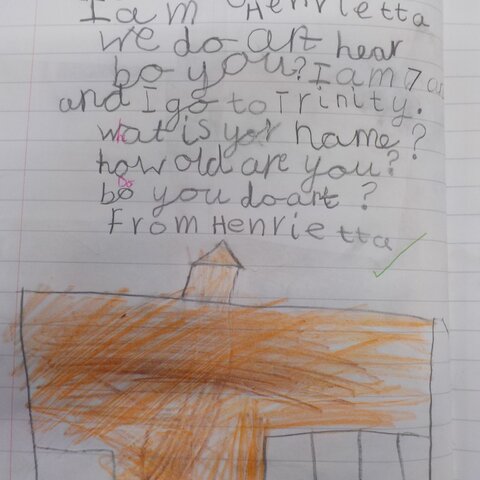 I am Henrietta
we do art hear
bo you? I am 7
and I go to Trinity.
what is yor name?
how old are you?
bo you do art?
From Henrietta